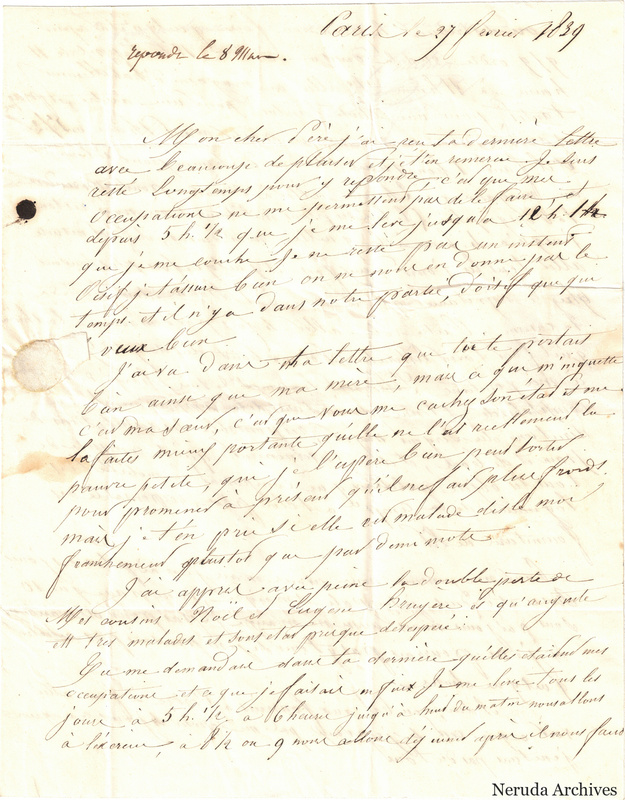 Paris le 27 fevrier 1839
repondu le 8 Mars.
Mon cher Père j'ai reçu ta dernière lettre
avec beaucoup de plaisir et je t'en remercie. Je suis
resté longtemps pour y repondre, c'est que mes
Occupations ne me permettent pas de le faire et
depuis 5 h. 1/2 que je me lève jusqu'a 12 h. 1/2
que je me couche je ne reste pas un instant
Oisif je t'assure bien on ne nous en donne pas le
temps et il n'y a dans notre partie, d'oisif que qui
veux bien.
J'ai vu dans ta lettre que toi te portais
bien ainsi que ma mère, mais ce qui m'inquette
c'est ma sœur, c'est que vous me cachez son état et me
la faites mieux portante qu'elle ne l'est reellement la
pauvre petite, qui je l'espère bien peut sortir
pour promener à présent qu'il ne fait plus froids.
mais je t'en prie si elle est malade dis le moi
franchement plustot que par demi mots.
J'ai appris avec peine la double perte de
Mes cousins Noël et Eugène Bruyère et qu'auguste
est très malades et son etat presque desesperé.
Tu me demandais dans ta dernière qu'elles etaient mes
occupations et ce que je faisais Je me lève tous les
jours à 5 h. 1/2 a 6 heure jusqu'à huit du matin nous allons
à l'exercice, à 8 1/2 ou 9 nous allons dejeuner après il nous faut
Neruda Archives